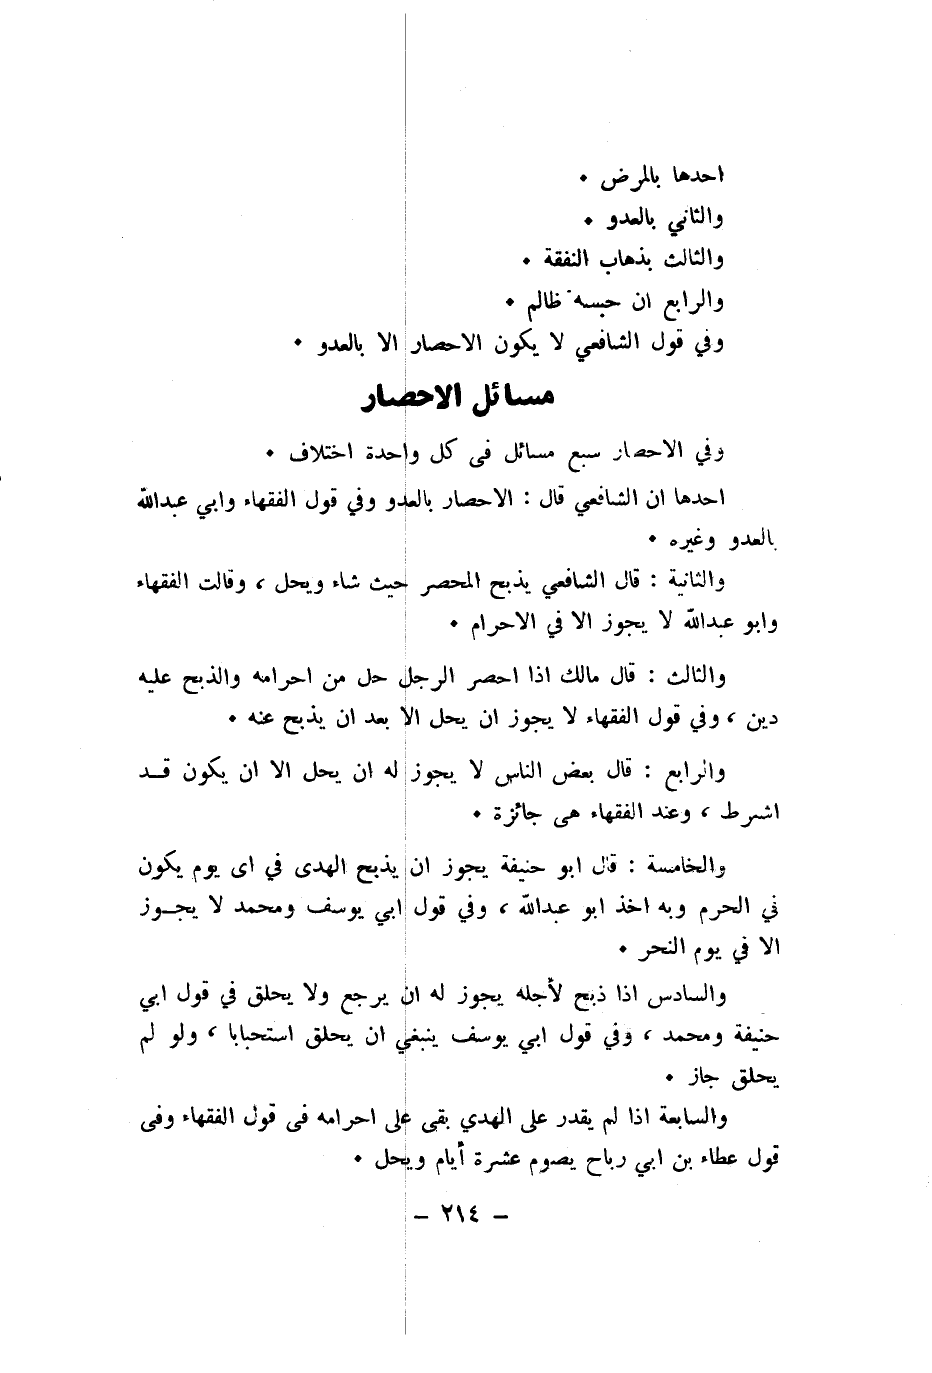 احدها بالمرض ٠
والثاني بالعدو ٠
والثالث بذهاب النفقة ٠
والرابع ان حبسه ظالم ٠
وفي قول الشافعي لا يكون الاحصار الا بالعدو ٠
مسائل الاحصار
وفي الاحصار سبع مسائل فى كل واحدة اختلاف ٠
احدها ان الشافعي قال : الاحصار بالعدو وفي قول الفقهاء وابي عبدالله
بالعدو وغيره ٠
والثانية : قال الشافعي يذبح المحصر حيث شاء ويحل ، وقالت الفقهاء
وابو عبدالله لا يجوز الا في الاحرام ٠
والثالث : قال مالك اذا احصر الرجل حل من احرامه والذبح عليه
دين ، وفي قول الفقهاء لا يجوز ان يحل الا بعد ان يذبح عنه ٠
والرابع : قال بعض الناس لا يجوز له ان يحل الا ان يكون قـد
اشرط ، وعند الفقهاء هى جائزة ٠
والخامسة : قال ابو حنيفة يجوز ان يذبح الهدى في اى يوم يكون
في الحرم وبه اخذ ابو عبدالله ، وفي قول ابي يوسف ومحمد لا يجـوز
الا في يوم النحر ٠
والسادس اذا ذبح لأجله يجوز له ان يرجع ولا يحلق في قول ابي
حنيفة ومحمد ، وفي قول ابي يوسف ينبغي ان يحلق استحبابا ، ولو لم
يحلق جاز ٠
والسابعة اذا لم يقدر على الهدي بقى على احرامه فى قول الفقهاء وفى
قول عطاء بن ابي رباح يصوم عشرة أيام ويحل ٠
- ٢١٤ -